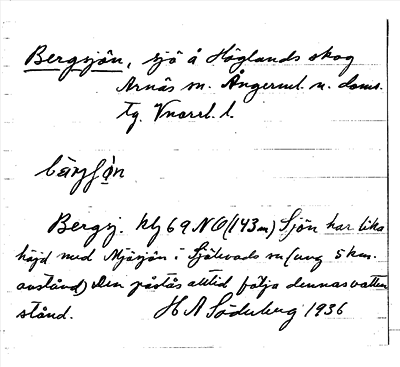 Bergsjön, sjö å Höglands skog
Arnäs sn. Ångerml. n. doms.
tg. Vnorrl. l.
Bergsj. blg 69 NO (143 m) Sjön har lika
höjd med Mjösjön i Själevads sn (ung 5 km.
avstånd) Den påstås alltid följa dennas vatten
stånd. H A Söderberg 1936